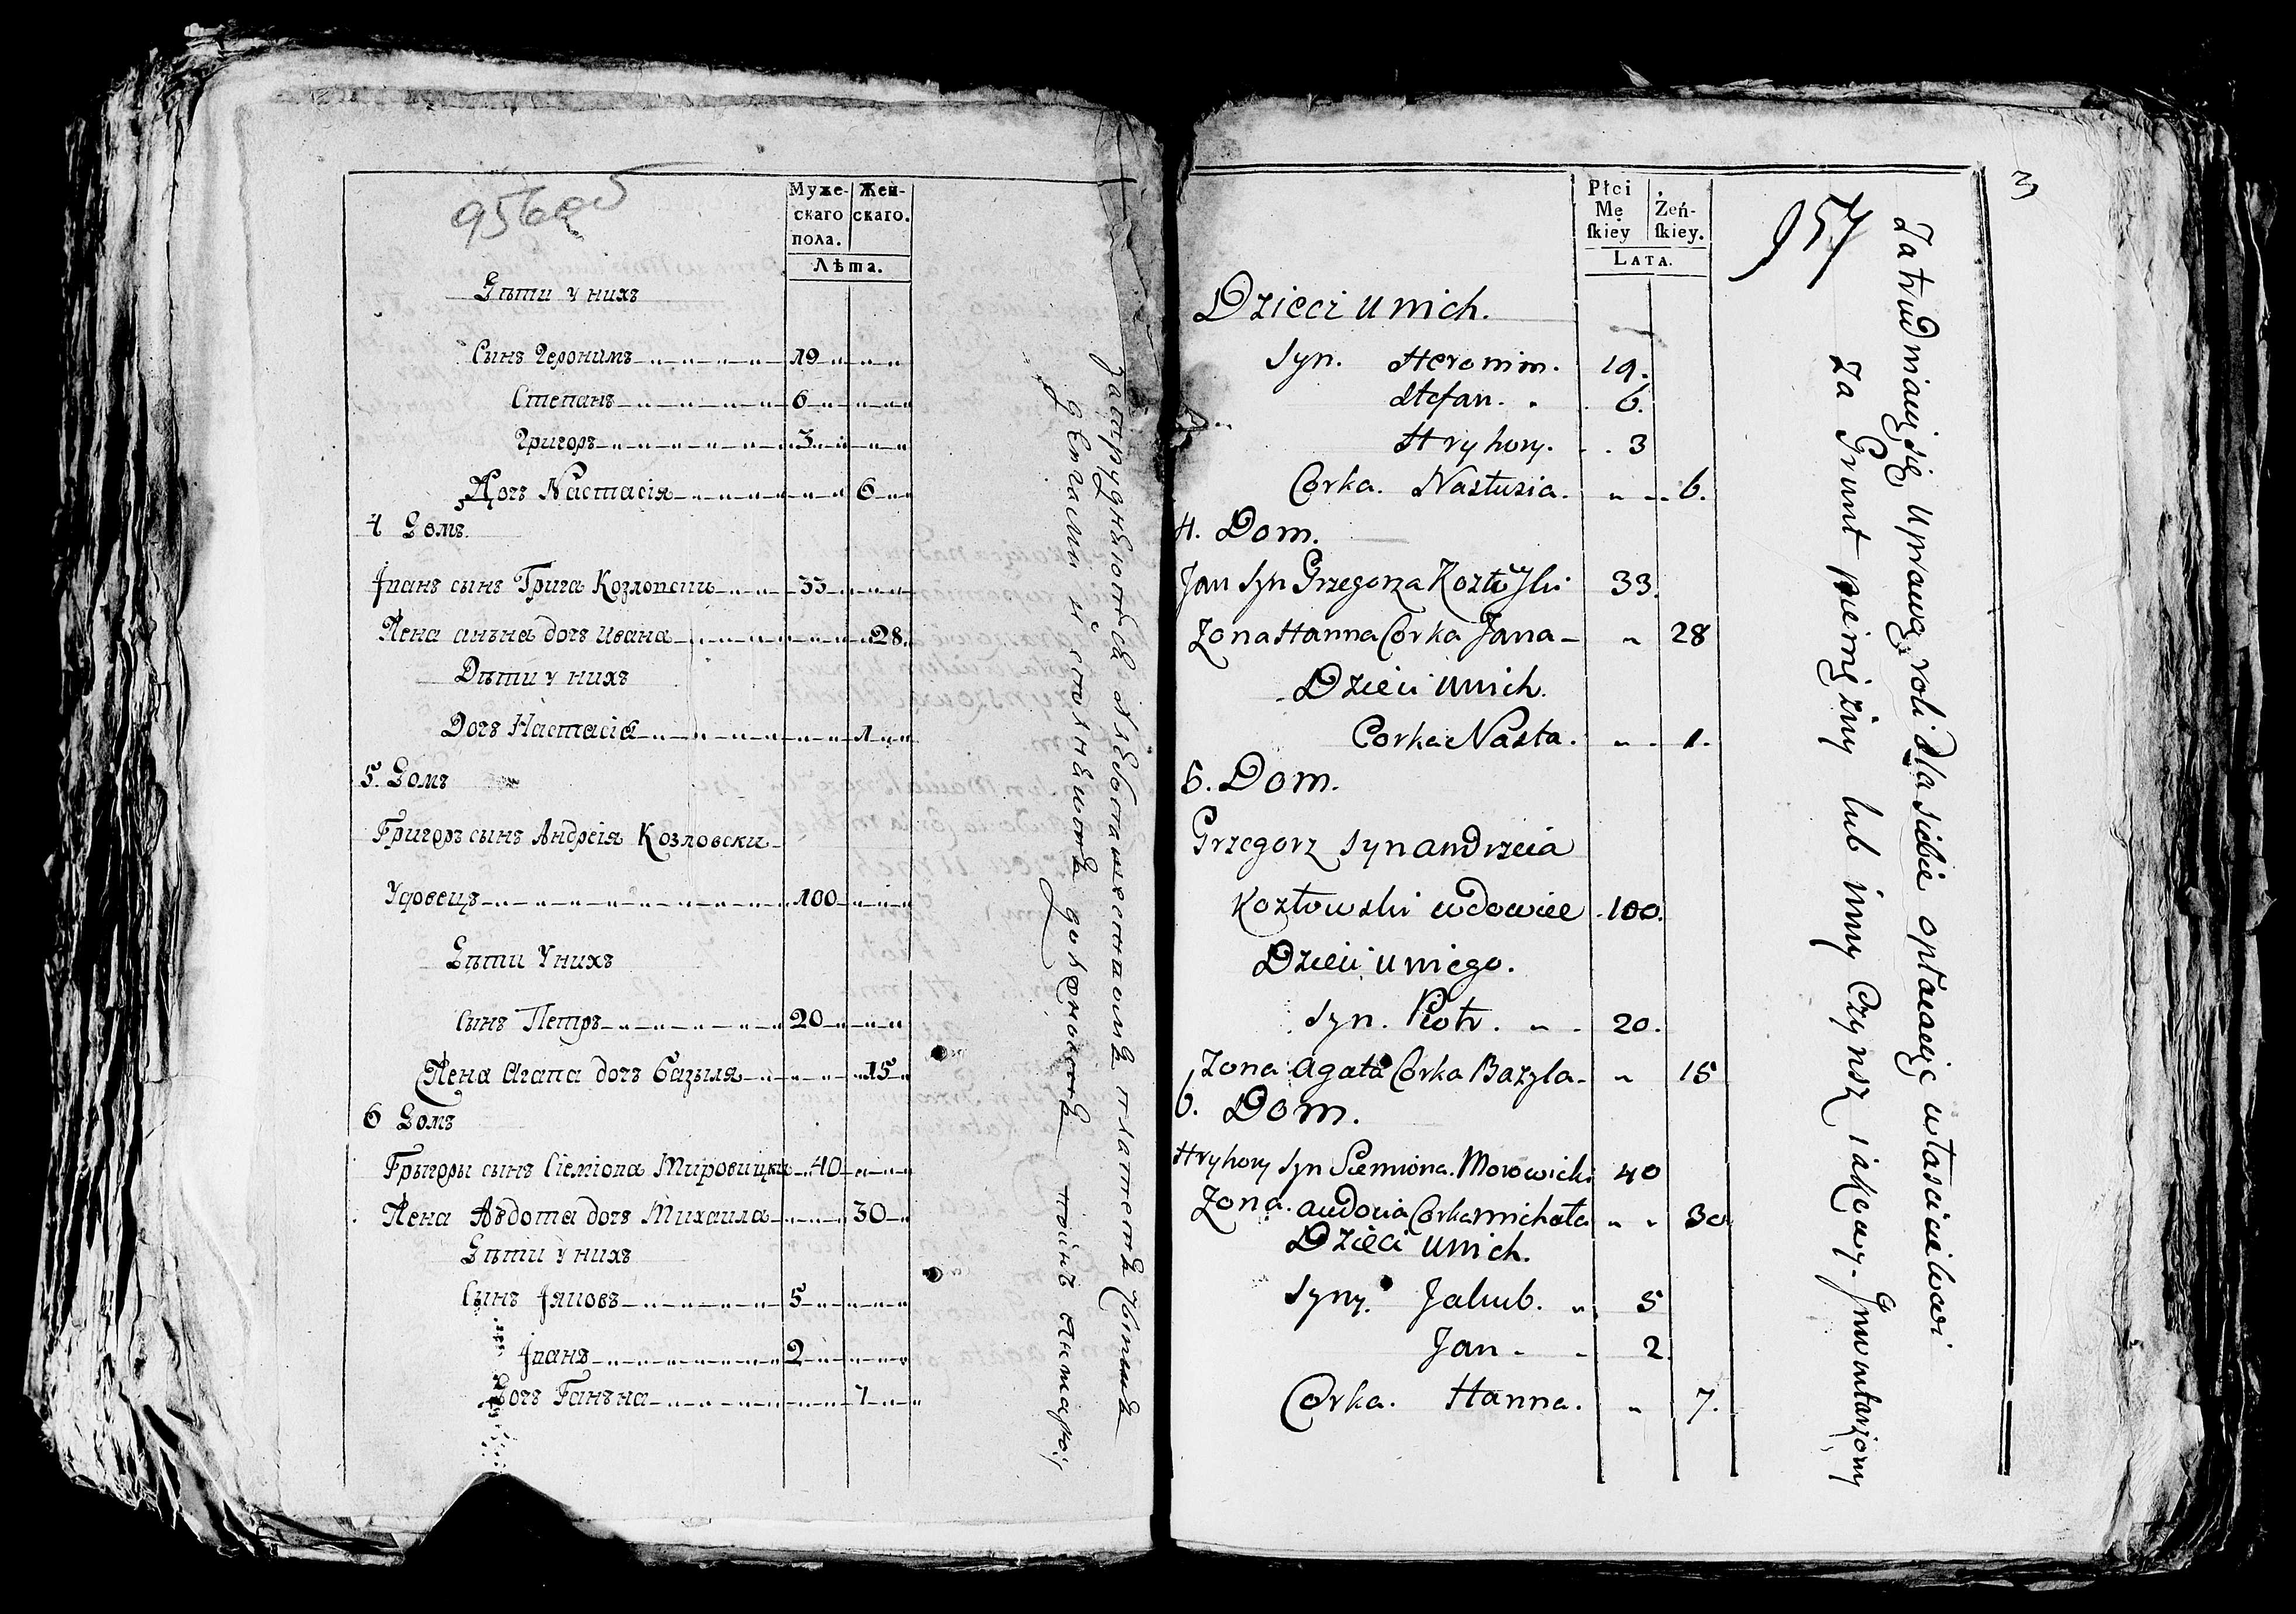 956об
Муже-
скаго
пола.
Жен-
скаго.
Лѣта.
Дѣти у нихъ
Сынъ Геронимъ 19
Степанъ 6
Григоръ 3
Дочъ Настасія 6
4 Домъ.
Іванъ сынъ Грига Козловски 33
Жена анъна дочъ ивана 28
Дѣти у нихъ
Дочъ Настасіа 1
5. Домъ
Григоръ сынъ Андреія Козловски
Удовецъ 100
Дѣти Унихъ
Сынъ Петръ 20
Жена Агапа дочъ базыля 15
6 Домъ
Грыгоры сынъ Сіеміона Мировицки 40
Жена Авдота дочъ Михаила 30
Дѣти у нихъ
Сынъ Іяцовъ 5
Іванъ 2
Дочъ Ганъна 7
3
957
Płci
Mę
skiey
Żeń-
skiey.
LATA.
Dzieci u nich.
Syn. Heronim. 19.
Stefan. 6.
Hryhory. 3
Corka. Nastusia. 6.
4. Dom.
Jan Syn Grzegorza Kozłowski 33.
Zona Hanna Corka Jana 28
Dzieci unich.
Corka Nasta. 1.
5. Dom.
Grzegorz Syn andrzeia
Kozłowski wdowiec 100.
Dzieci u niego.
Syn. Piotr. 20.
Zona Agata Corka Bazyla 15
6. Dom.
Hryhory Syn Siemiona Morowicki 40
Zona. audocia Corka michała 30
Dzieci unich.
Syny. Jakub. 5
Jan 2.
Corka. Hanna. 7.
Zatrudniaiący się uprawą roli dla siebie opłacaiąc właścicielowi
Za Grunt pieniężny lub inny Czynsz iakowy